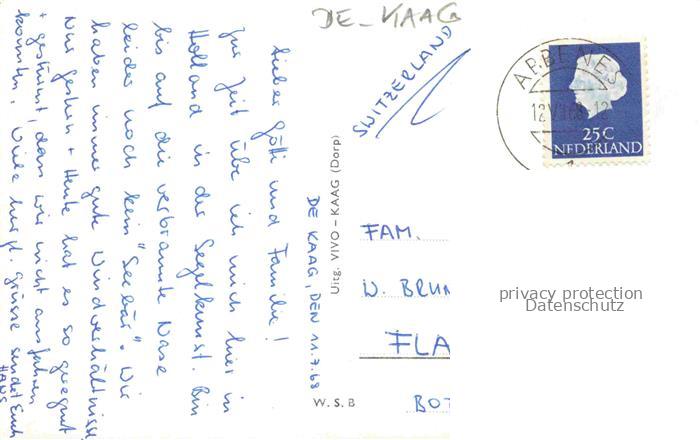 DE KAAG, DEN 11.7.68
Lieber Götti und Familie!
Zur Zeit übe ich mich hier in
Holland in der Segelkunst. Bin
bis auf die verbrannte Nase
leider noch kein "Seebär". Wir
haben immer gute Windverhältnisse
Nur gestern + Heute hat es so geregnet
+ gestürmt, dass wir nicht ausfahren
konnten. Viele herzl. Grüsse sendet Euch
HANS
DE KAAG
SWITZERLAND
Uitg. VIVO - KAAG (Dorp)
W. S. B
ABBENES
12 VII 68 - 12
25 C
NEDERLAND
FAM.
W. BRUN
FLA
BOT
privacy protection
Datenschutz